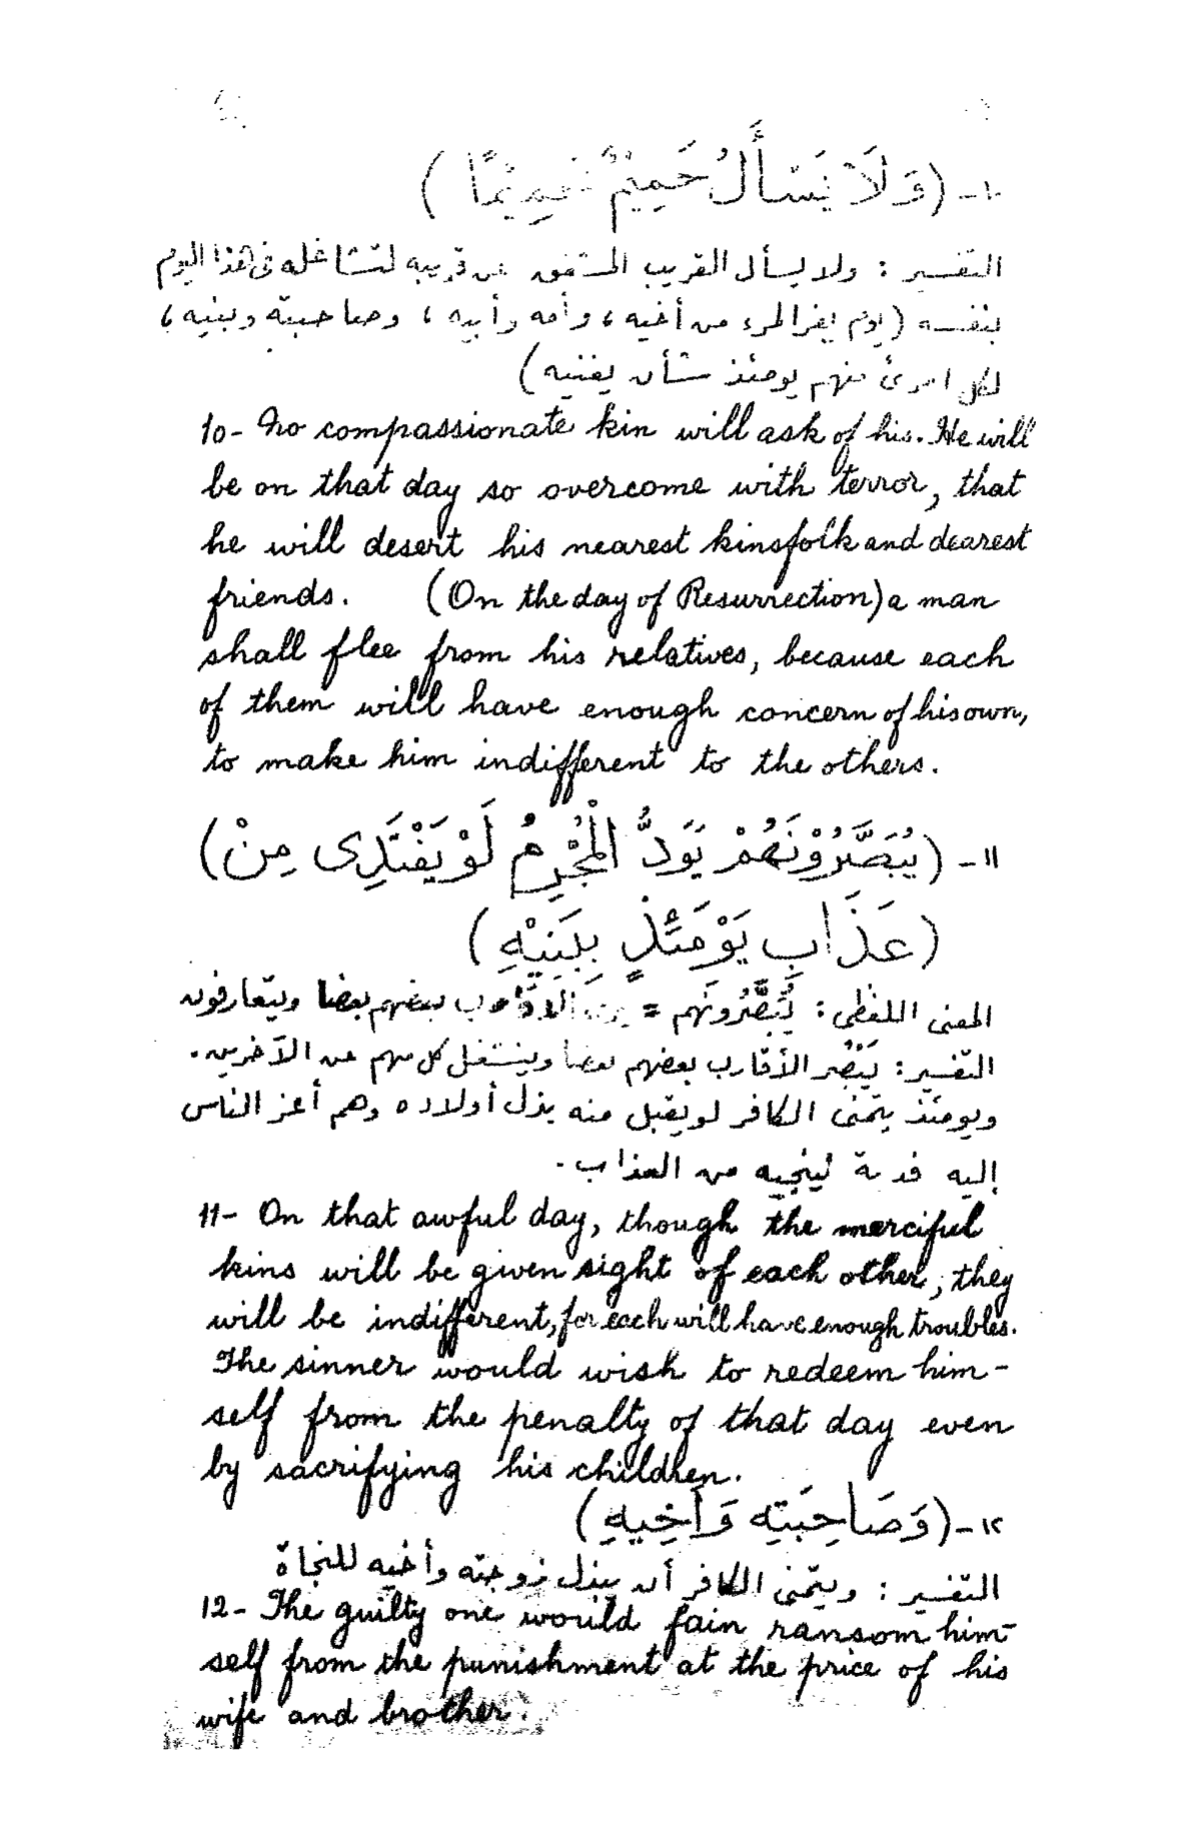 ١٠- (وَلَا يَسْأَلُ حَمِيمٌ حَمِيمًا)
التفسير : ولا يسأل القريب المشفق عن قريبه لتشاغله فى هذا اليوم
بنفسه (يوم يفر المرء من أخيه ، وأمه وأبيه ، وصاحبته وبنيه ،
لكل امرئ منهم يومئذ شأن يغنيه)
10- No compassionate kin will ask of his. He will
be on that day so overcome with terror, that
he will desert his nearest kinsfolk and dearest
friends. (On the day of Resurrection) a man
shall flee from his relatives, because each
of them will have enough concern of his own,
to make him indifferent to the others.
١١- (يُبَصَّرُوْنَهُمْ يَوَدُّ الْمُجْرِمُ لَوْ يَفْتَدِى مِنْ)
(عَذَابِ يَوْمَئِذٍ بِبَنِيْهِ)
المعنى اللفظى : يُبَصَّرُونَهُم = الأقارب بعضهم بعضا ويتعارفون
التفسير : يُبْصِر الأقارب بعضهم بعضا وينشغل كل منهم عن الآخرين.
ويومئذ يتمنى الكافر لو يقبل منه بذل أولاده وهم أعز الناس
إليه فدية لينجيه من العذاب.
11- On that awful day, though the merciful
kins will be given sight of each other, they
will be indifferent, for each will have enough troubles.
The sinner would wish to redeem him-
self from the penalty of that day even
by sacrifying his children.
١٢- (وَصَاحِبَتِهِ وَأَخِيهِ)
التفسير : ويتمنى الكافر أن يبذل زوجته وأخيه للنجاة
12- The guilty one would fain ransom him-
self from the punishment at the price of his
wife and brother.